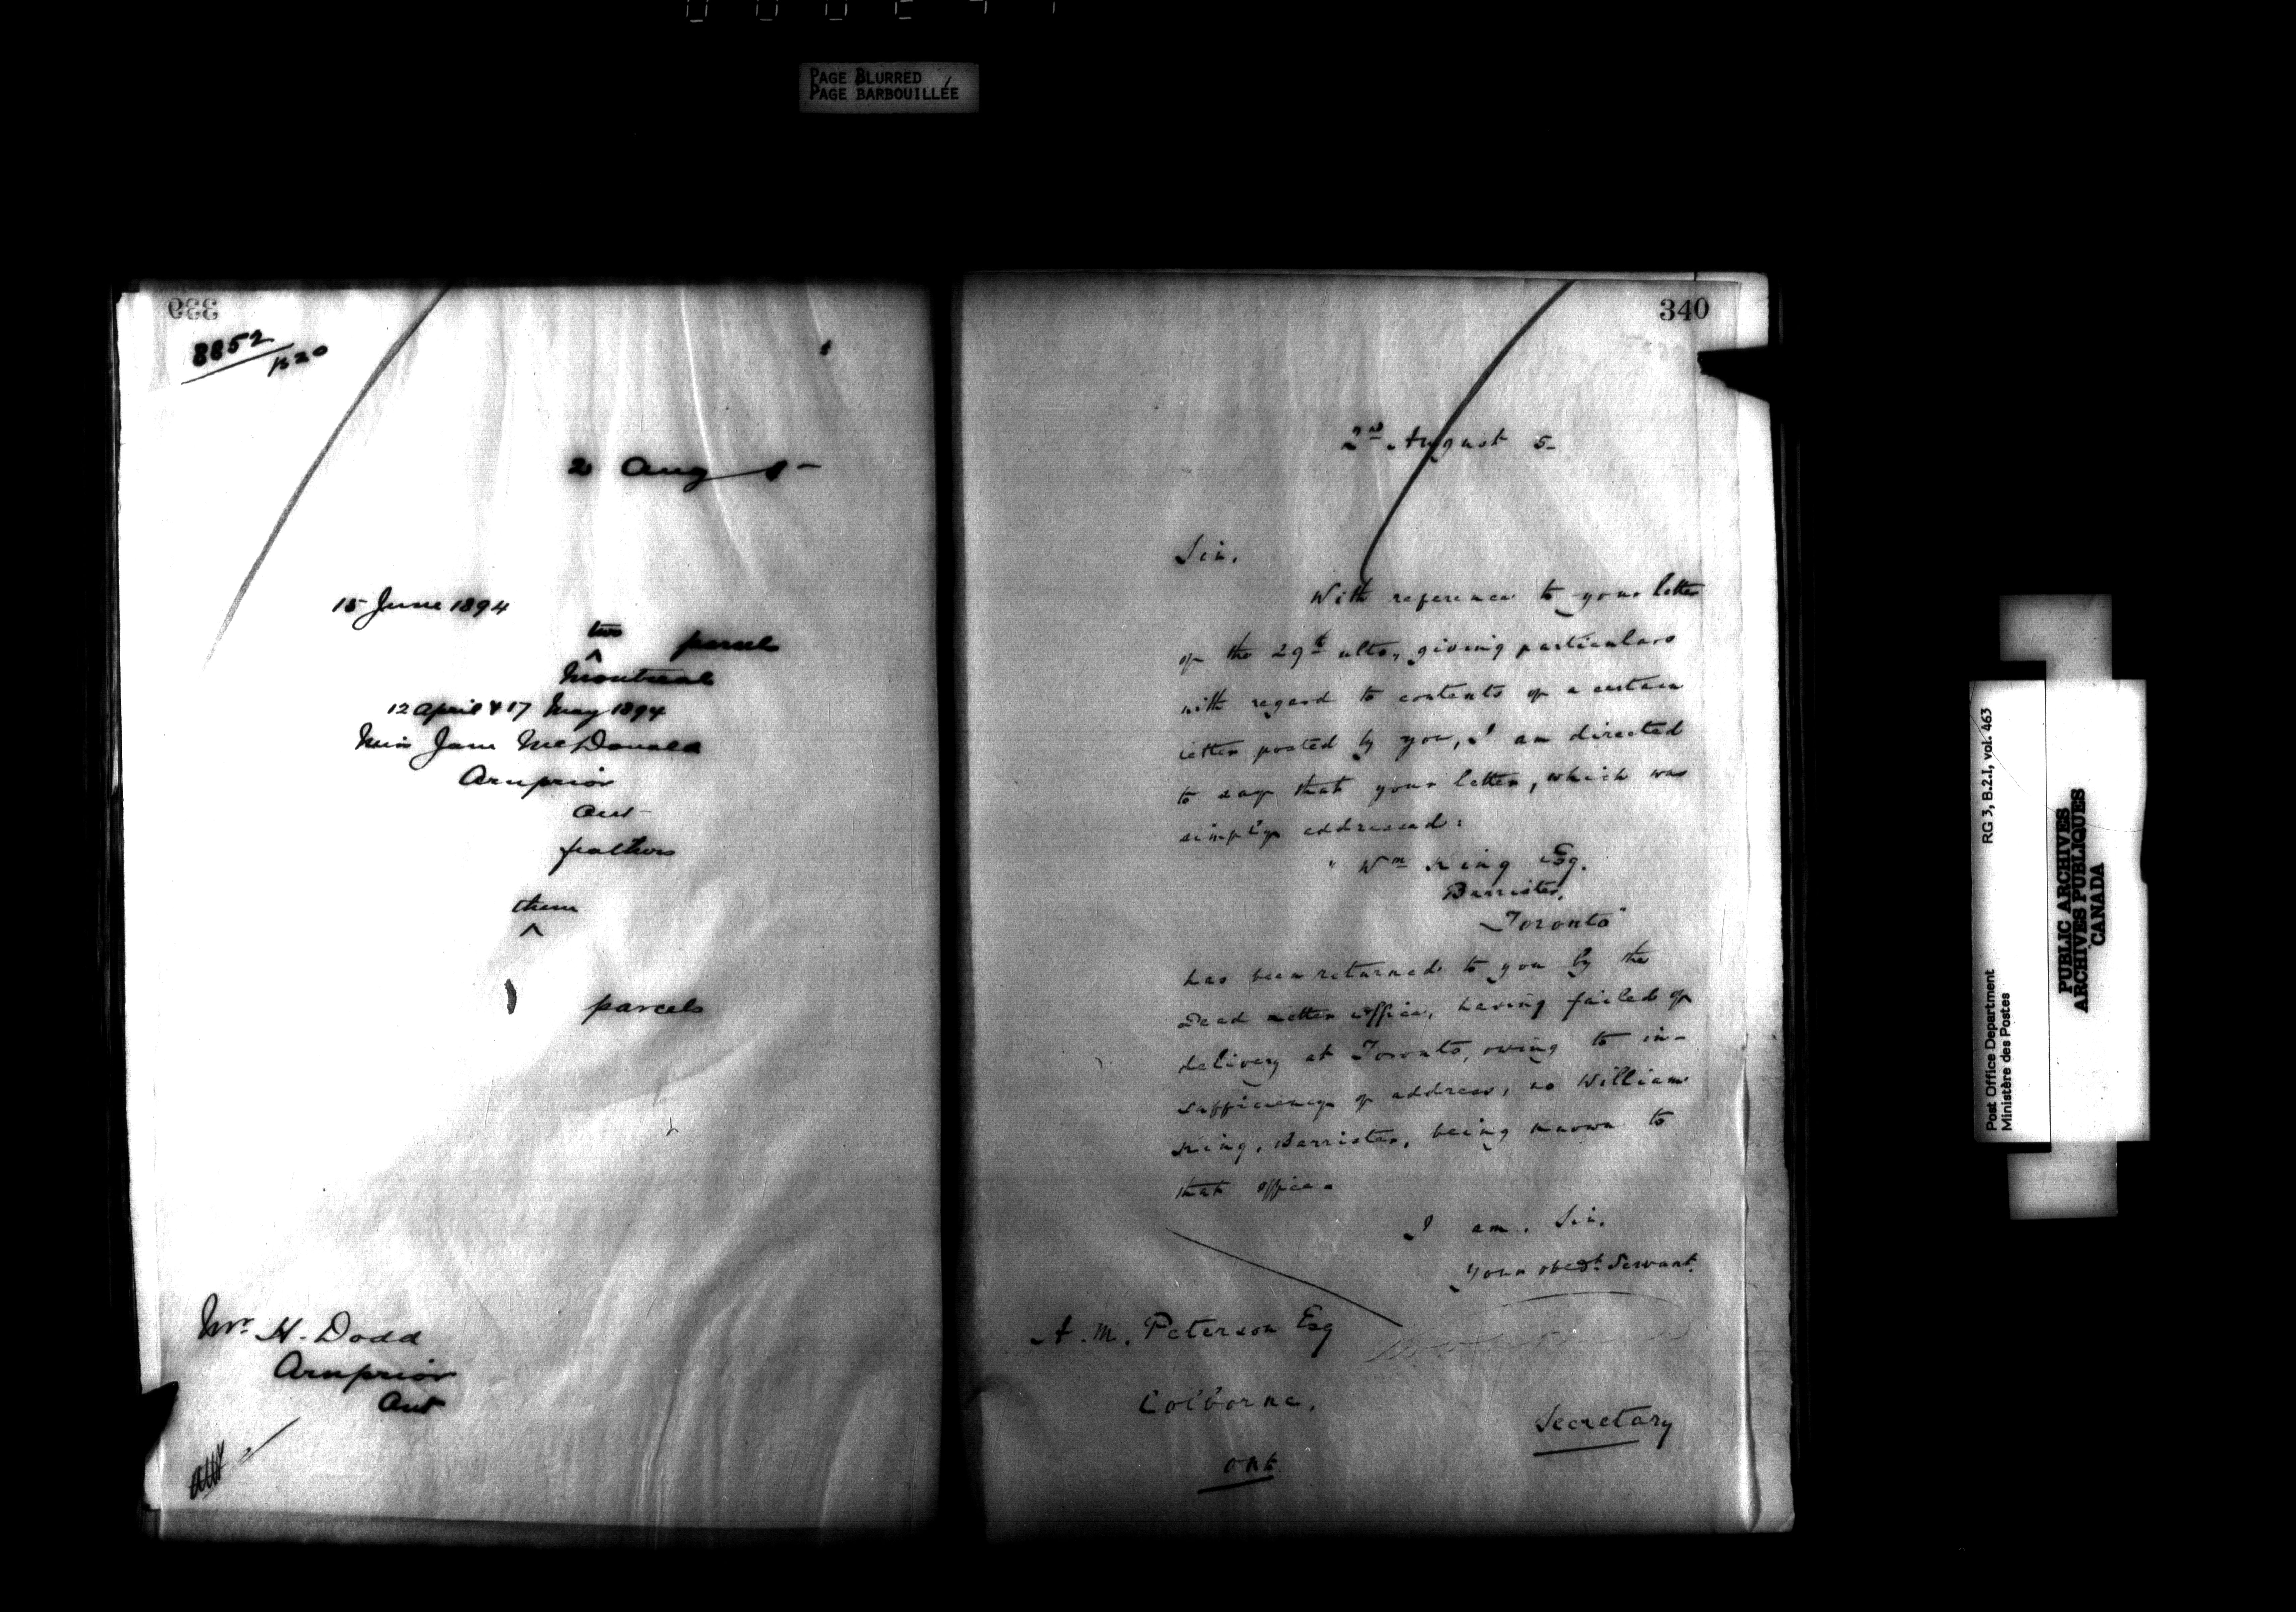 PAGE BLURRED
PAGE BARBOUILLÉE
339
8852
K20
2 Aug 5-
15 June 1894
two parcels
Montreal
12 April & 17 May 1894
Miss Jane McDonald
Arnprior
Ont
feathers
them
parcels
Mr. H. Dodd
Arnprior
Ont
340
2nd August 5-
Sir,
With reference to your letter
of the 29th ulto, giving particulars
with regard to contents of a certain
letter posted by you, I am directed
to say that your letter, which was
simply addressed:
"Wm King Esq.
Barrister,
Toronto"
has been returned to you by the
Dead Letter Office, having failed of
delivery at Toronto, owing to in-
sufficiency of address, no William
King, Barrister, being known to
that office.
I am, Sir,
Your obedt. Servant.
A. M. Peterson Esq
Colborne,
Ont
Secretary
Post Office Department
Ministère des Postes
RG 3, B.2.I, vol. 463
PUBLIC ARCHIVES
ARCHIVES PUBLIQUES
CANADA